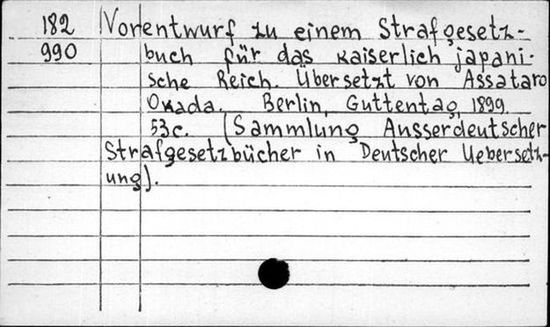 182 Vorentwurf zu einem Strafgesetz-
990 buch für das kaiserlich japani-
sche Reich. Übersetzt von Assataro
Okada. Berlin, Guttentag, 1899.
53c. (Sammlung Ausserdeutscher
Strafgesetzbücher in Deutscher Uebersetz-
ung).